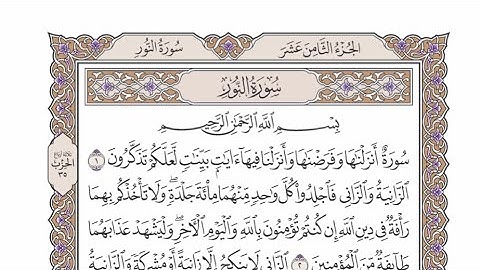 الجُزْءُ الثَّامِنَ عَشَرَ
سُورَةُ النُّورِ
سُورَةُ النُّورِ
بِسْمِ اللَّهِ الرَّحْمَٰنِ الرَّحِيمِ
سُورَةٌ أَنزَلْنَٰهَا وَفَرَضْنَٰهَا وَأَنزَلْنَا فِيهَآ ءَايَٰتٍۭ بَيِّنَٰتٍ لَّعَلَّكُمْ تَذَكَّرُونَ ١
ٱلزَّانِيَةُ وَٱلزَّانِى فَٱجْلِدُوا۟ كُلَّ وَٰحِدٍ مِّنْهُمَا مِا۟ئَةَ جَلْدَةٍ ۖ وَلَا تَأْخُذْكُم بِهِمَا
رَأْفَةٌ فِى دِينِ ٱللَّهِ إِن كُنتُمْ تُؤْمِنُونَ بِٱللَّهِ وَٱلْيَوْمِ ٱلْءَاخِرِ ۖ وَلْيَشْهَدْ عَذَابَهُمَا
طَآئِفَةٌ مِّنَ ٱلْمُؤْمِنِينَ ٢ ٱلزَّانِى لَا يَنكِحُ إِلَّا زَانِيَةً أَوْ مُشْرِكَةً وَٱلزَّانِيَةُ
الحِزْبُ
٣٥